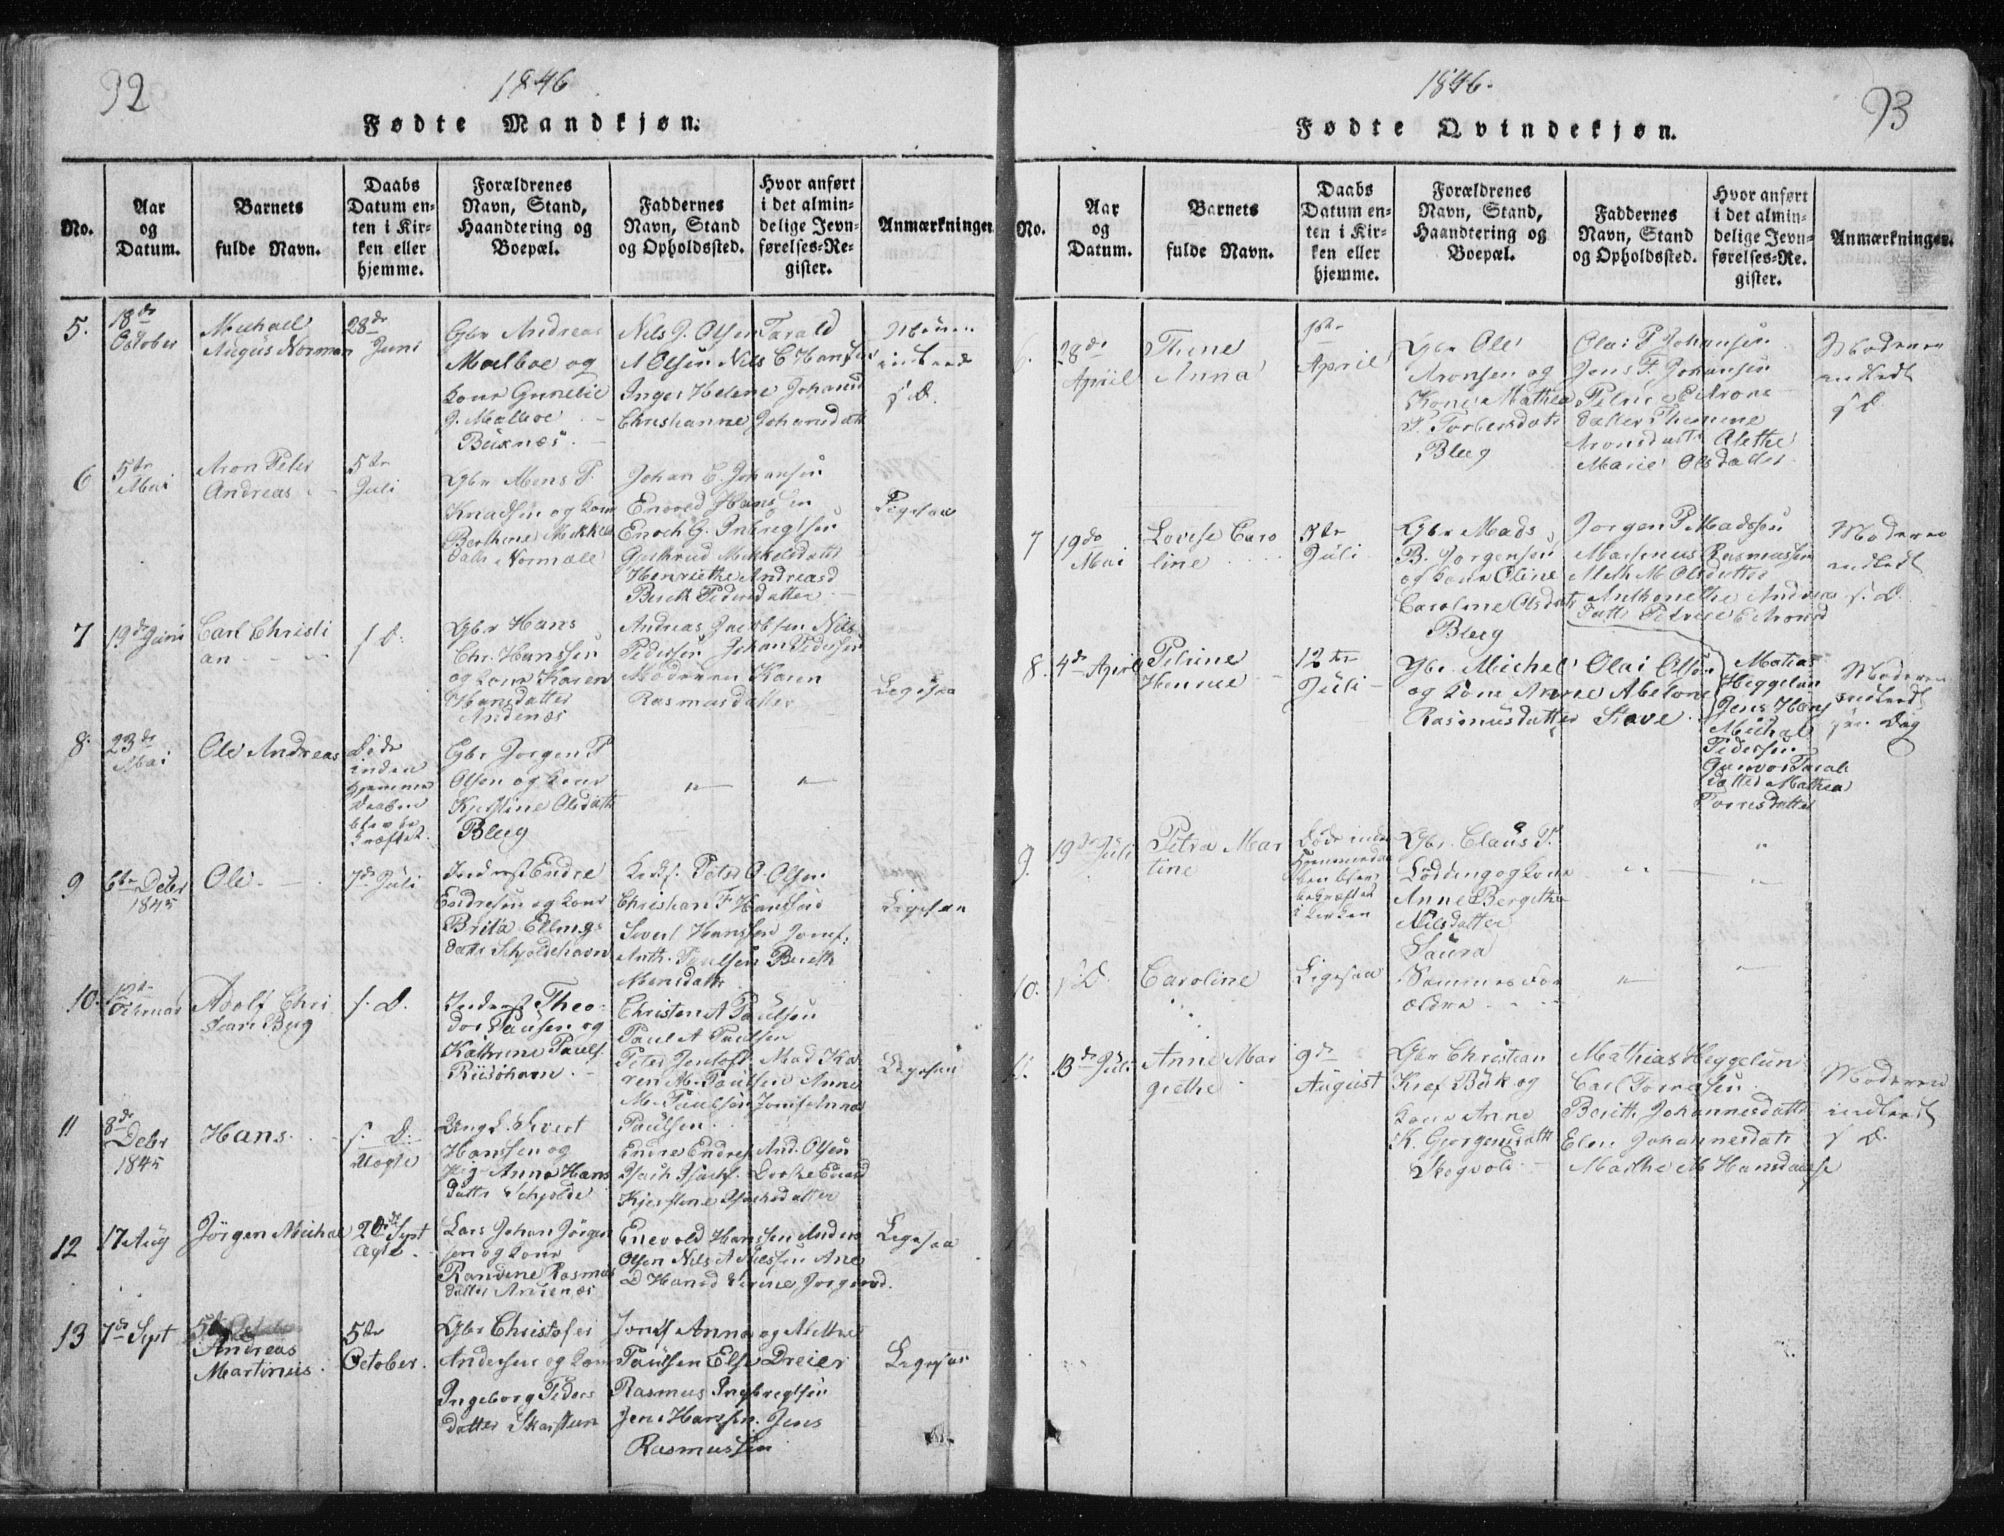 92
1846
Fødte Mandkjøn.
No.
Aar
og
Datum.
Barnets
fulde Navn.
Daabs
Datum en-
ten i Kir-
ken eller
hjemme.
Forældrenes
Navn, Stand,
Haandtering og
Boepæl.
Faddernes
Navn, Stand
og Opholdssted.
Hvor anført
i det almin-
delige Jevn-
førelses-Re-
gister.
Anmærkninger
5.
18de
October
Michael
Augus Norman
28de
Juni
Gbr Andreas
Moelboe og
Kone
Büxnæs
Nils J. Olsen Tarald
A Olsen Nils C Hansen
Inger Helene Johansd
Christianne Johansdatt
s D.
6
5te
Mai
Aron Peter
Andreas
5te
Juli
Gbr Mons P.
Knudsen og Kone
Berthine Mikkels
datt Normæle
Johan E. Johansen
Enevold Hanssen
Enoch G. Inbregtsen
Mikkelsdatt
Henriethe Andreasd
Berith Pedersdatter
Ligesaa
7
19de Juni
Carl Christi
an
s D.
Gbr Hans
Chr. Hanssen
og Kone Karen
Hansdatter
Andenæs
Andreas Jacobsen Nils
Pedersen Johan Pedersen
Moderen Karen
Rasmusdatter
Ligesaa
8.
23de
Mai
Ole Andreas
Døde
inden
Hjemme
Daaben
blev be
kræftet.
Gbr Jorgen P
Olsen og Kone
Kirstine Olsdatt
Bleg
9
6te Debr
1845
Ole
7de Juli
Inderst Endre
Endresen og Kone
Brita Elling-
datt Schjoldehavn
Peter O. Olsen
Christian F Hanssen
Sivert Hanssen Jomf:
Anth. Paulsen Berith
Monsdatt
Ligesaa
10.
12te
Februar
Adolf Chri
stian Berg
s. D.
Inderst Theo-
dor Paulsen og
Kathrine Pauls
Riisøhavn
Christen A Paulsen
Paul A Paulsen
Peter Jentoft Mad Ka-
ren M. Paulsen Anne
M. Paulsen Jomf Anna
Paulsen
Ligesaa
11
8de
Debr
1845
Hans
s. D.
Uægte
Ung L. Sivert
Hanssen og
Pig Anna Hans
datt Schjolde
Endre Endres And. Olsen
Kjerstine Isachsdatter
12
17 Aug
Jörgen Michal
20de Sept
ægte
Lars Johan Jörgen
sen og Kone
Randine Rasmus
datter Andenæs
Enevold Hanssen Anders
Olsen Nils A Nielsen Ane
D Hansd Verine Jorgensd.
Ligesaa
13
7de Sept
Andreas
Martinus
5te
October
Gbr Christofer
Andersen og Kone
Ingeborg Peders
datter Skarsteen
Jomf Anna og Mette
Paulsen Else Dreier
Rasmus Ingbregtsen
Jens Hanssen. Jens
Rasmussen
Ligesaa
93
1846.
Fødte Qvindekjøn.
No.
Aar
og
Datum.
Barnets
fulde Navn.
Daabs
Datum en-
ten i Kir-
ken eller
hjemme.
Forældrenes
Navn, Stand,
Haandtering og
Boepæl.
Faddernes
Navn, Stand
og Opholdssted.
Hvor anført
i det almin-
delige Jevn-
førelses-Re-
gister.
Anmærkninger.
6.
28de
April
Thine
Anna
1ste
April
Gbr Ole
Aronsen og
Kone Mathea
P. Torbersdatt
Bleg
Olai P Johansen
Jens F. Johansen
Petrine E Arons
datter
Aronsdatt Alethe
Marie Olsdatter
Moderen
indledt
s D.
7
19de
Mai
Lovise Caro
line
5te
Juli
Gbr Mads
B. Jorgensen
og Kone Oline
Caroline Olsdatt
Bleg
Jorgen P Madssen
Marsenus Rasmussen
Meth M Olsdatter
Anthonethe Andrea
datt Petrine E Aronsd
Moderen
indledt
s. D.
8.
4de April
Petrine
Hennne
12te
Juli
Gbr Michel
og Kone Anne Abelone
Rasmusdatter Stave
Olai Olsen
Matias
Heggelun
Jens Hans
Michal
Pedersen
Gunvor Taral
datter Mathea
Torresdatter
Moderen
indledt
s Dag
9.
19de Juli
Petra Mar
tine
Døde inden
Hjemmedaa
ben blev
bekræftet
i Kirken
Gbr Claus P.
Lödding og Kone
Anne Bergithe
Nilsdatter
Saura
10.
s D.
Caroline
Ligesaa
Samme For
ældre
11.
13de Juli
Anne Mar
grethe
9de
August
Gbr Christian
Kref Bük og
Kone Anne
K. Gjorgensdatt
Skogvold
Mathias Heggelun
Carl Tomasen
Berith Johannesdatt
Elen Johannesdatt
Marthe M Hansdatter
Moderen
indledt
s D.